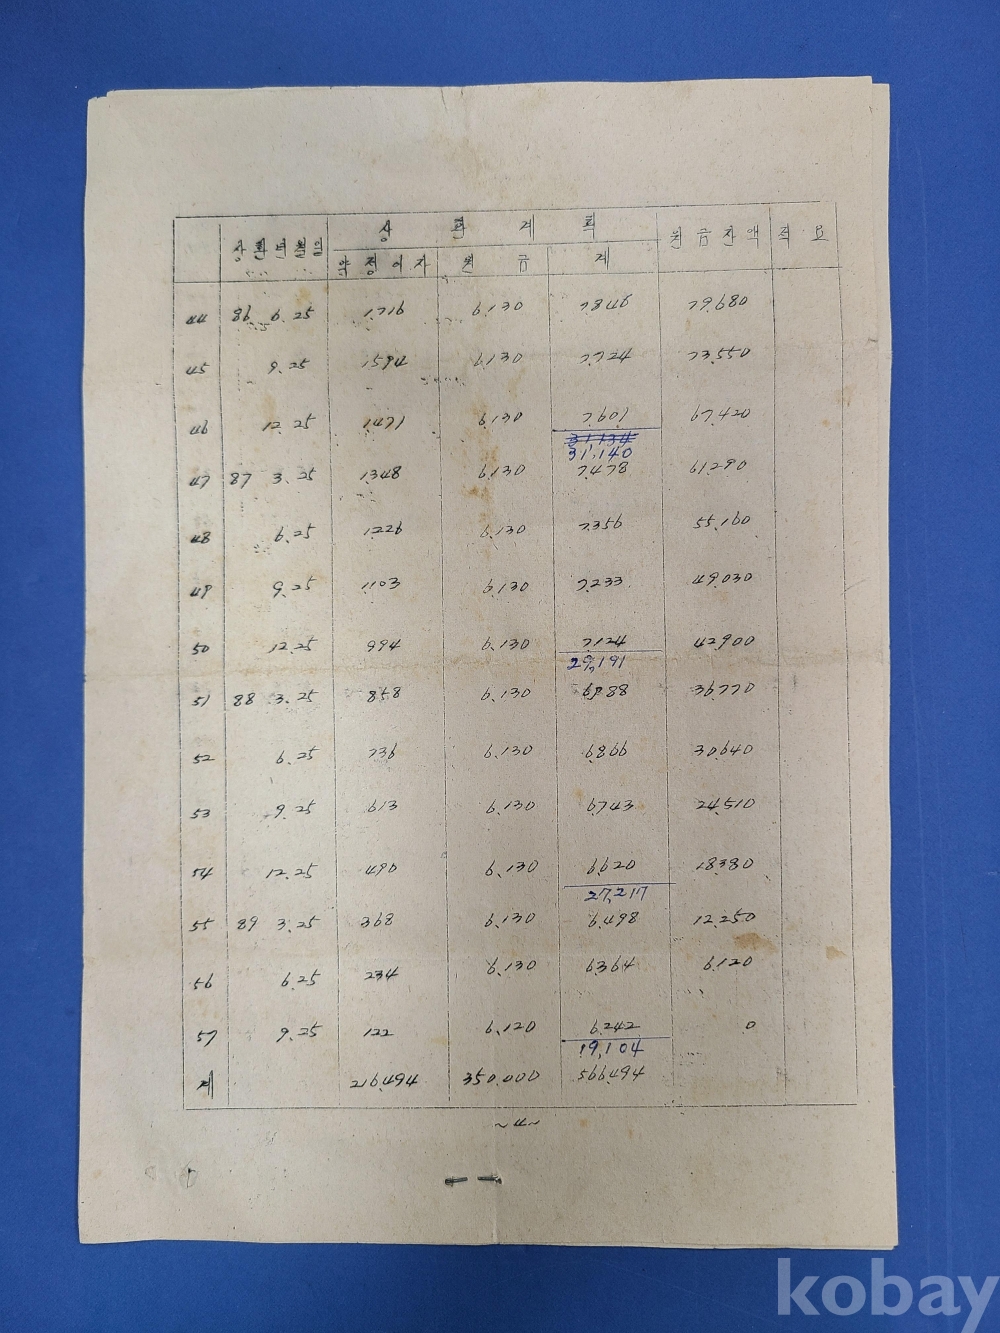 상 환 계 획
상환년월일 원금잔액 적요
약정이자 원금 계
44 86 6.25 1.716 6.130 7.846 79.680
45 9.25 1.594 6.130 7.724 73.550
46 12.25 1.471 6.130 7.601 67.420
31,134
31,140
47 87 3.25 1.348 6.130 7.478 61.290
48 6.25 1226 6.130 7.356 55.160
49 9.25 1.103 6.130 7.233 49.030
50 12.25 994 6.130 7.124 42900
29,191
51 88 3.25 858 6.130 6.988 36.770
52 6.25 736 6.130 6.866 30.640
53 9.25 613 6.130 6.743 24.510
54 12.25 490 6.130 6.620 18.380
27,217
55 89 3.25 368 6.130 6.498 12.250
56 6.25 234 6.130 6.364 6.120
57 9.25 122 6.120 6.242 0
19,104
계 216.494 350.000 566.494
~4~
kobay